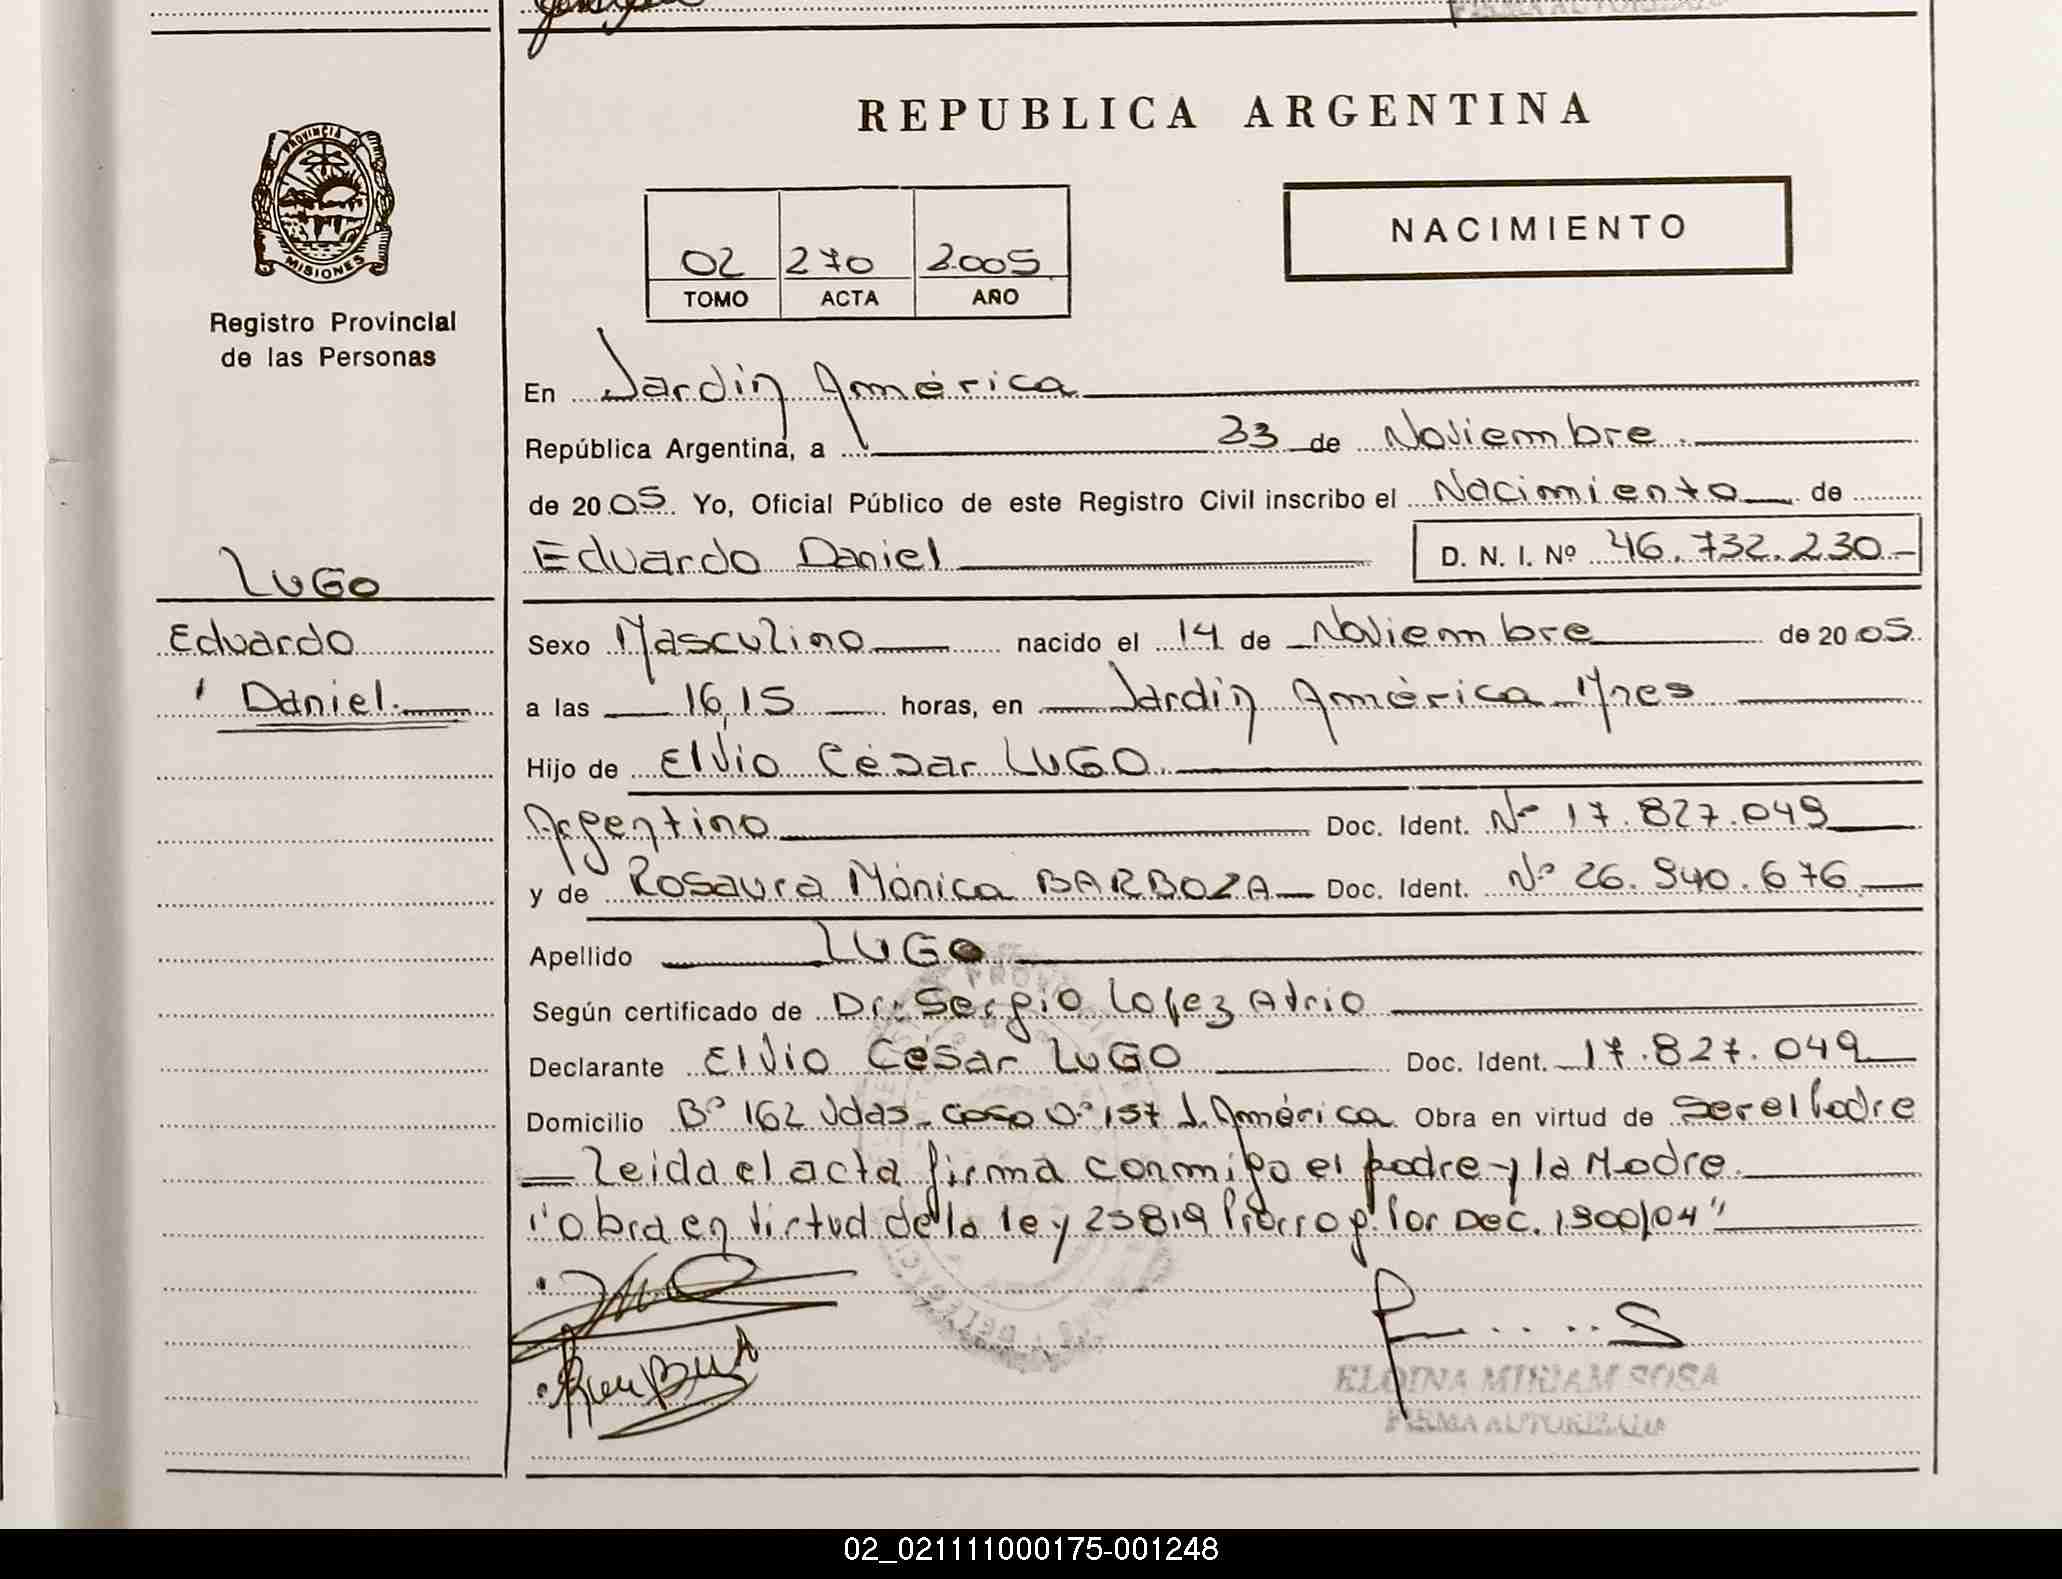 REPUBLICA ARGENTINA
PROVINCIA DE
MISIONES
Registro Provincial
de las Personas
02 270 2005
TOMO ACTA AÑO
NACIMIENTO
En Jardín América
República Argentina, a 23 de Noviembre
de 2005 Yo, Oficial Público de este Registro Civil inscribo el Nacimiento de
Eduardo Daniel D. N. I. Nº 46.732.230-
LUGO
Eduardo
Daniel.
Sexo Masculino nacido el 14 de Noviembre de 2005
a las 16,15 horas, en Jardín América Mnes
Hijo de Elvio César LUGO.
Argentino Doc. Ident. Nº 17.827.049
y de Rosaura Mónica BARBOZA Doc. Ident. Nº 26.940.676
Apellido LUGO
Según certificado de Dr: Sergio Lopez Atrio
Declarante Elvio César LUGO Doc. Ident. 17.827.049
Domicilio Bº 162 Vdas. Casa Nº 157 J. América Obra en virtud de ser el Padre
Leída el acta firma conmigo el padre y la Madre.
"Obra en virtud de la ley 25819 Prorrog. Por Dec. 1900/04"
ELOINA MIRIAM SOSA
FIRMA AUTORIZADA
02_021111000175-001248